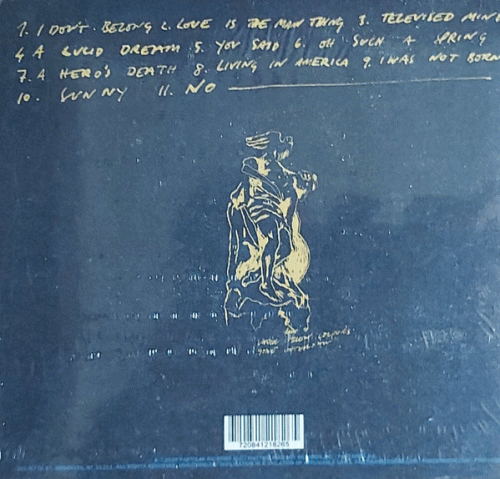 1. I DON'T BELONG 2. LOVE IS THE MAIN THING 3. TELEVISED MIN
4 A LUCID DREAM 5. YOU SAID 6. OH SUCH A SPRING
7. A HERO'S DEATH 8. LIVING IN AMERICA 9. I WAS NOT BORN
10. SUNNY 11. NO
720841218265